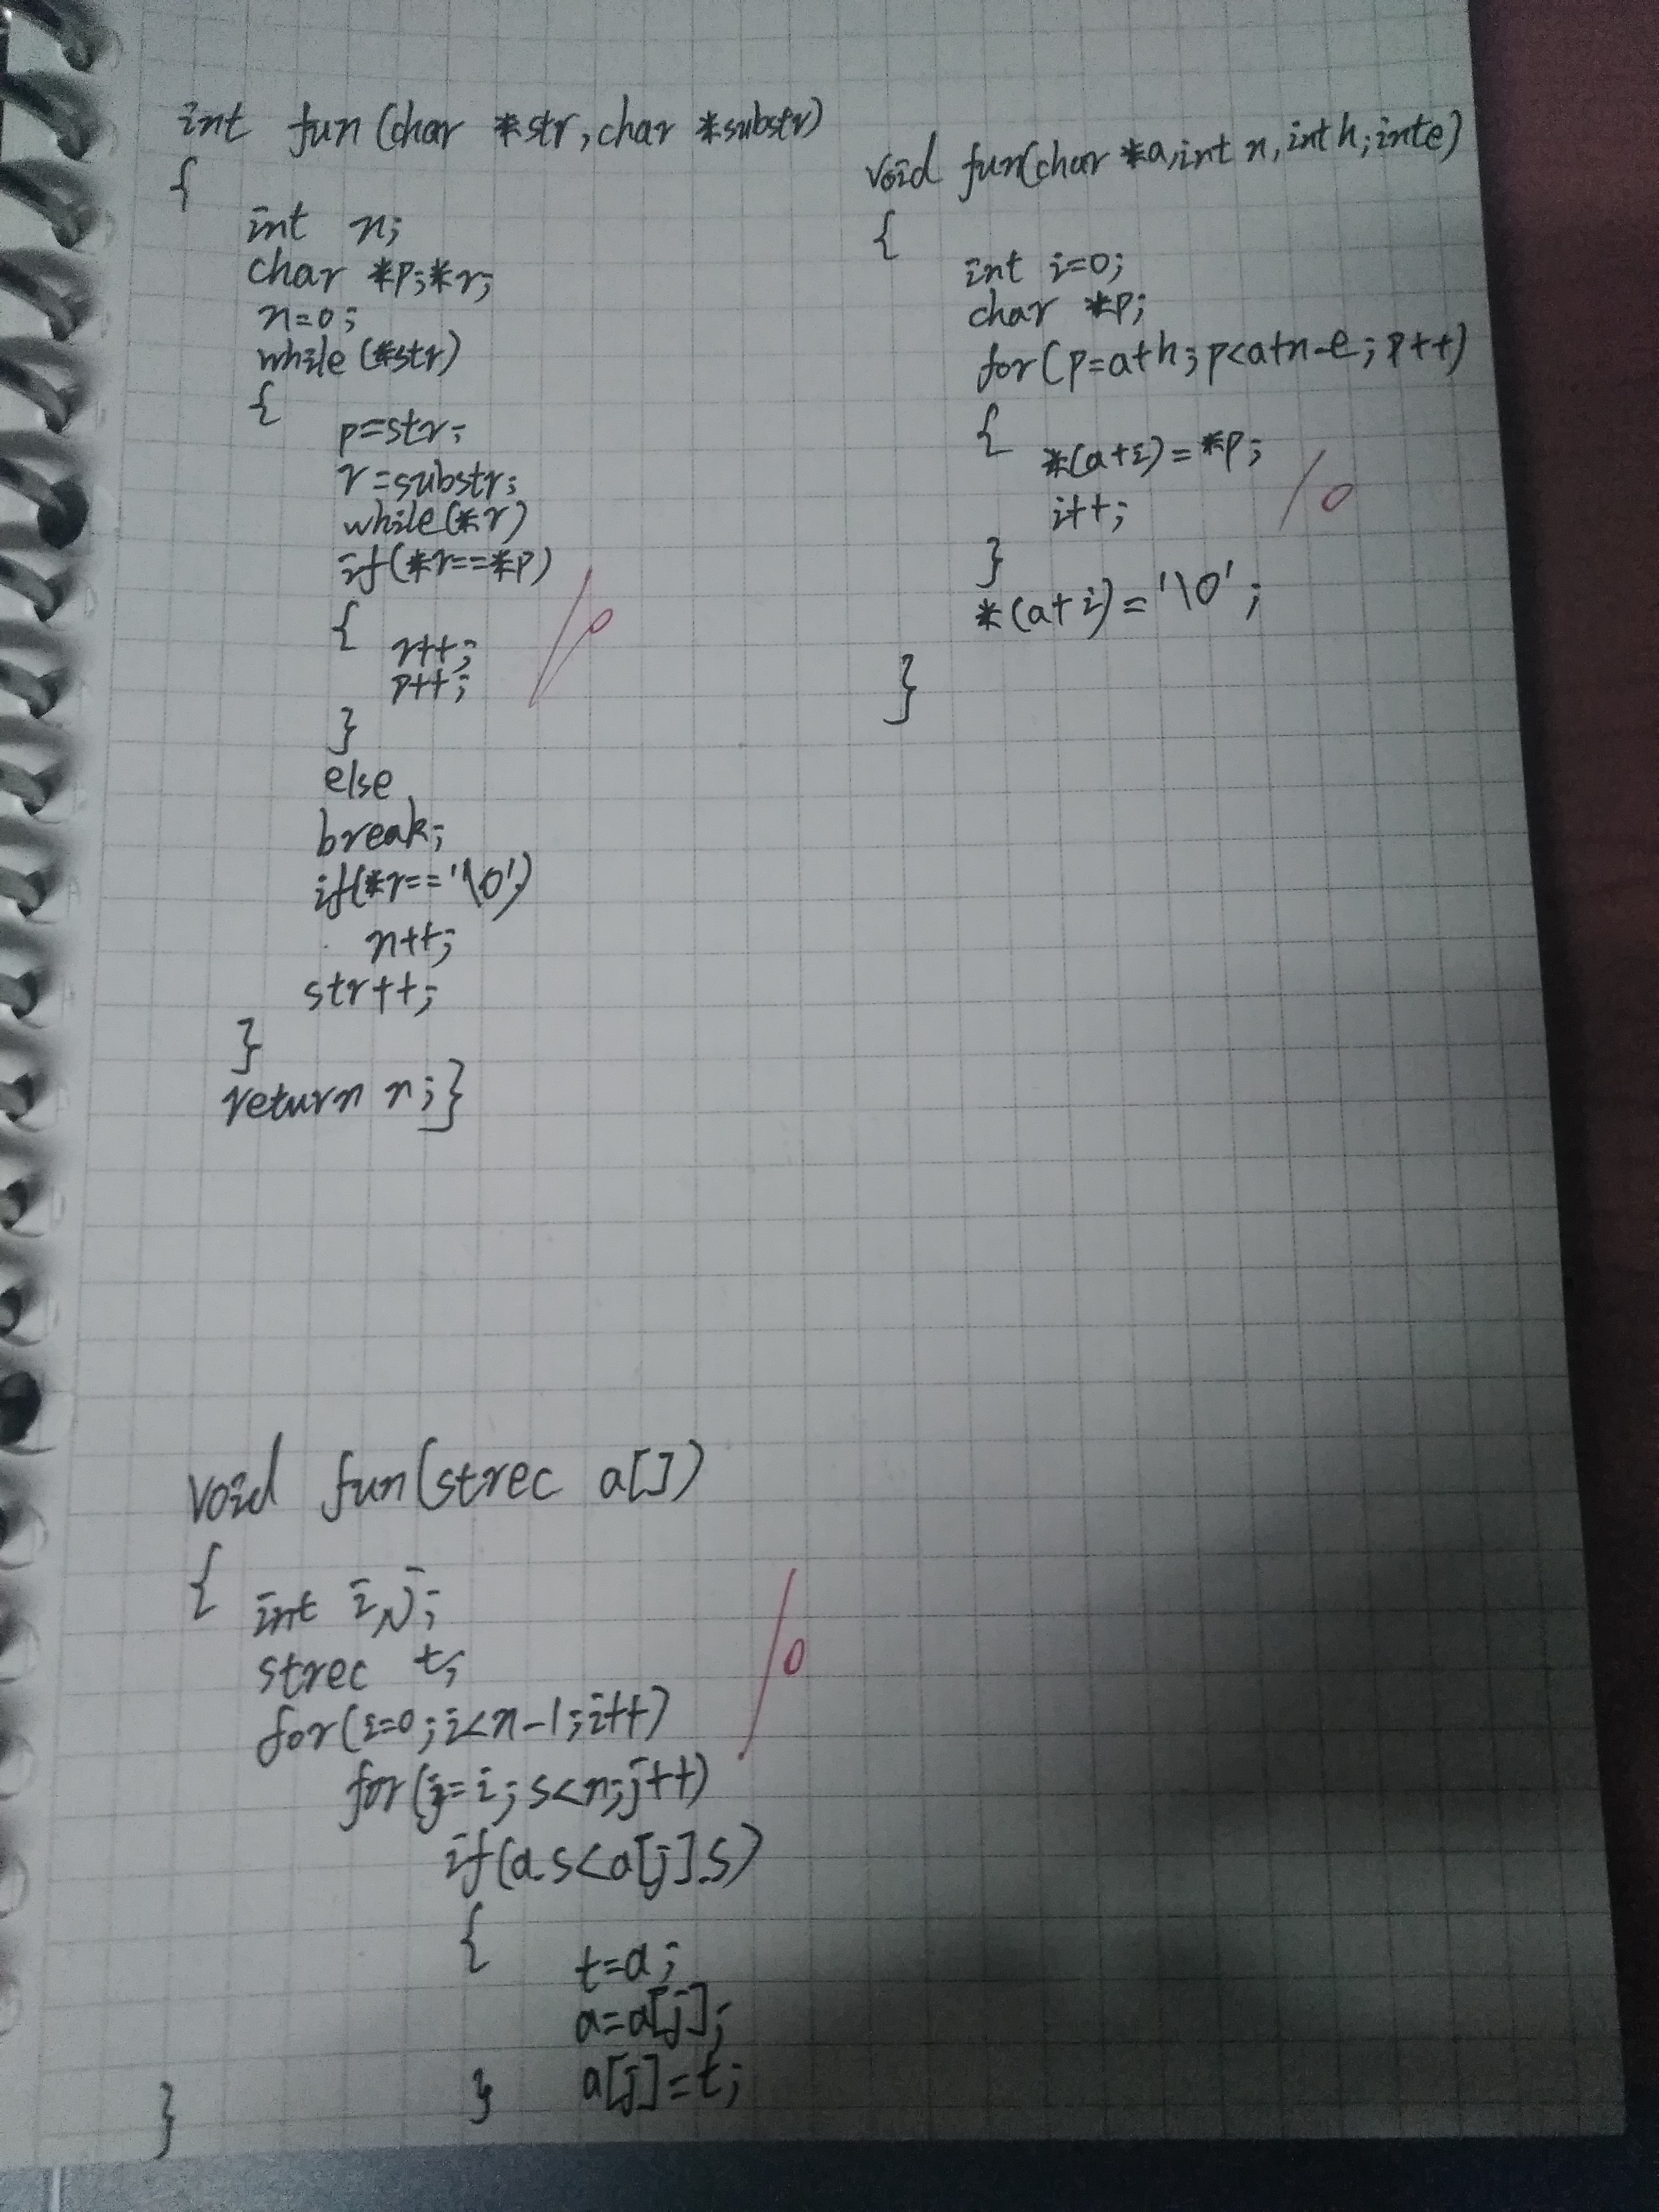 int fun(char *str,char *substr)
{
int n;
char *p;*r;
n=0;
while(*str)
{
p=str;
r=substr;
while(*r)
if(*r==*p)
{
r++;
p++;
}
else
break;
if(*r=='\0')
n++;
str++;
}
return n;}
10
void fun(char *a,int n,int h;inte)
{
int i=0;
char *p;
for(p=a+h;p<a+n-e;p++)
{
*(a+i)=*p;
i++;
}
*(a+i)='\0';
}
10
void fun(strec a[])
{
int i,j;
strec t;
for(i=0;i<n-1;i++)
for(j=i;s<n;j++)
if(a.s<a[j].s)
{
t=a;
a=a[j];
} a[j]=t;
}
10